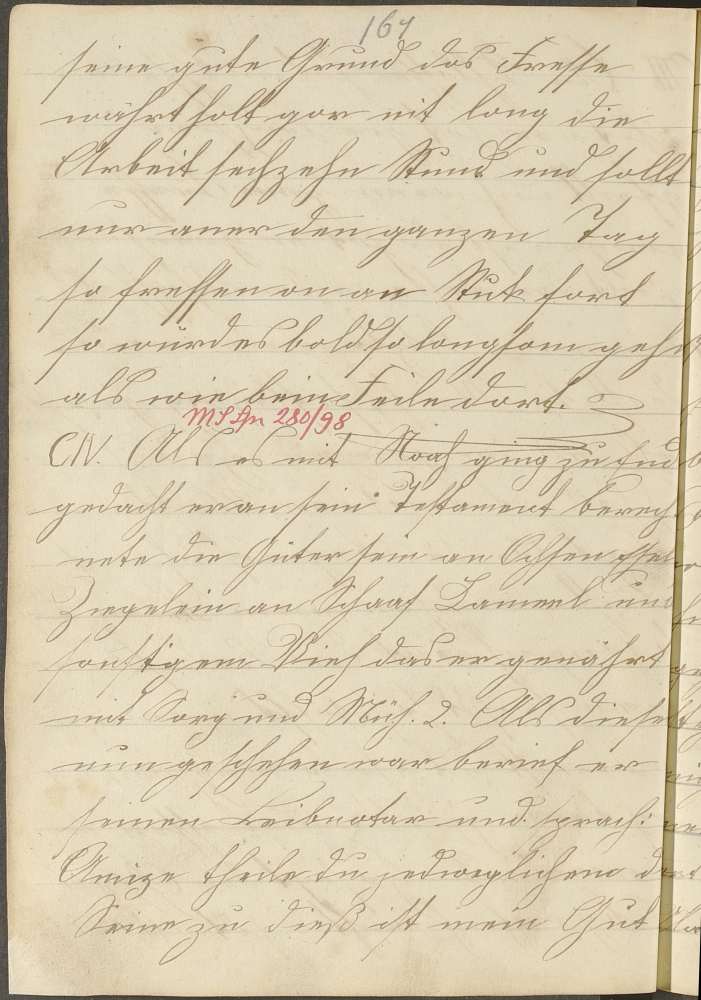 161
seine gute Grund das Fresse
währt holt gar nit long die
Arbeit sechzehn Stund und sollt
nur aner den ganzen Tag
so fressen on an Stuk fort
so würd es bold so longsom gehn
als wie beim Feile dort.
MS An 280/98
CIV. Als es mit Noah ging zu End
gedacht er an sein Testament berech
nete die Güter sein an Ochsen Esel
Ziegelein an Schaaf Lameel und
sonstigem Vieh das er genährt
mit Sorg und Müh. 2. Als dieses
nun geschehen war berief er
seinen Leibnotar und sprach:
Amize theile du jedweglichem das
Seine zu dieß ist mein Gut